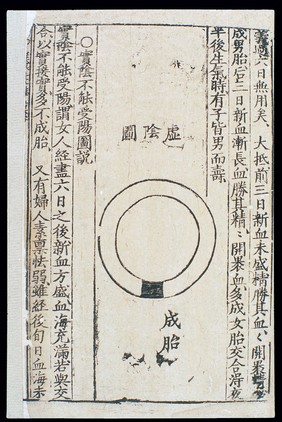 過六日無用矣、大抵前三日新血未盛精勝其血ヽ開裹
成男胎后三日新血漸長血勝其精ヽ開裹血多成女胎交合得夜
半後生氣時有子皆男而壽
虛陰圖
成胎
〇實陰不能受陽圖說
實陰不能受陽謂女人經盡六日之後新血方盛血海充滿若與交
合以實接實多不成胎 又有婦人素稟怯弱雖經後旬日血海未